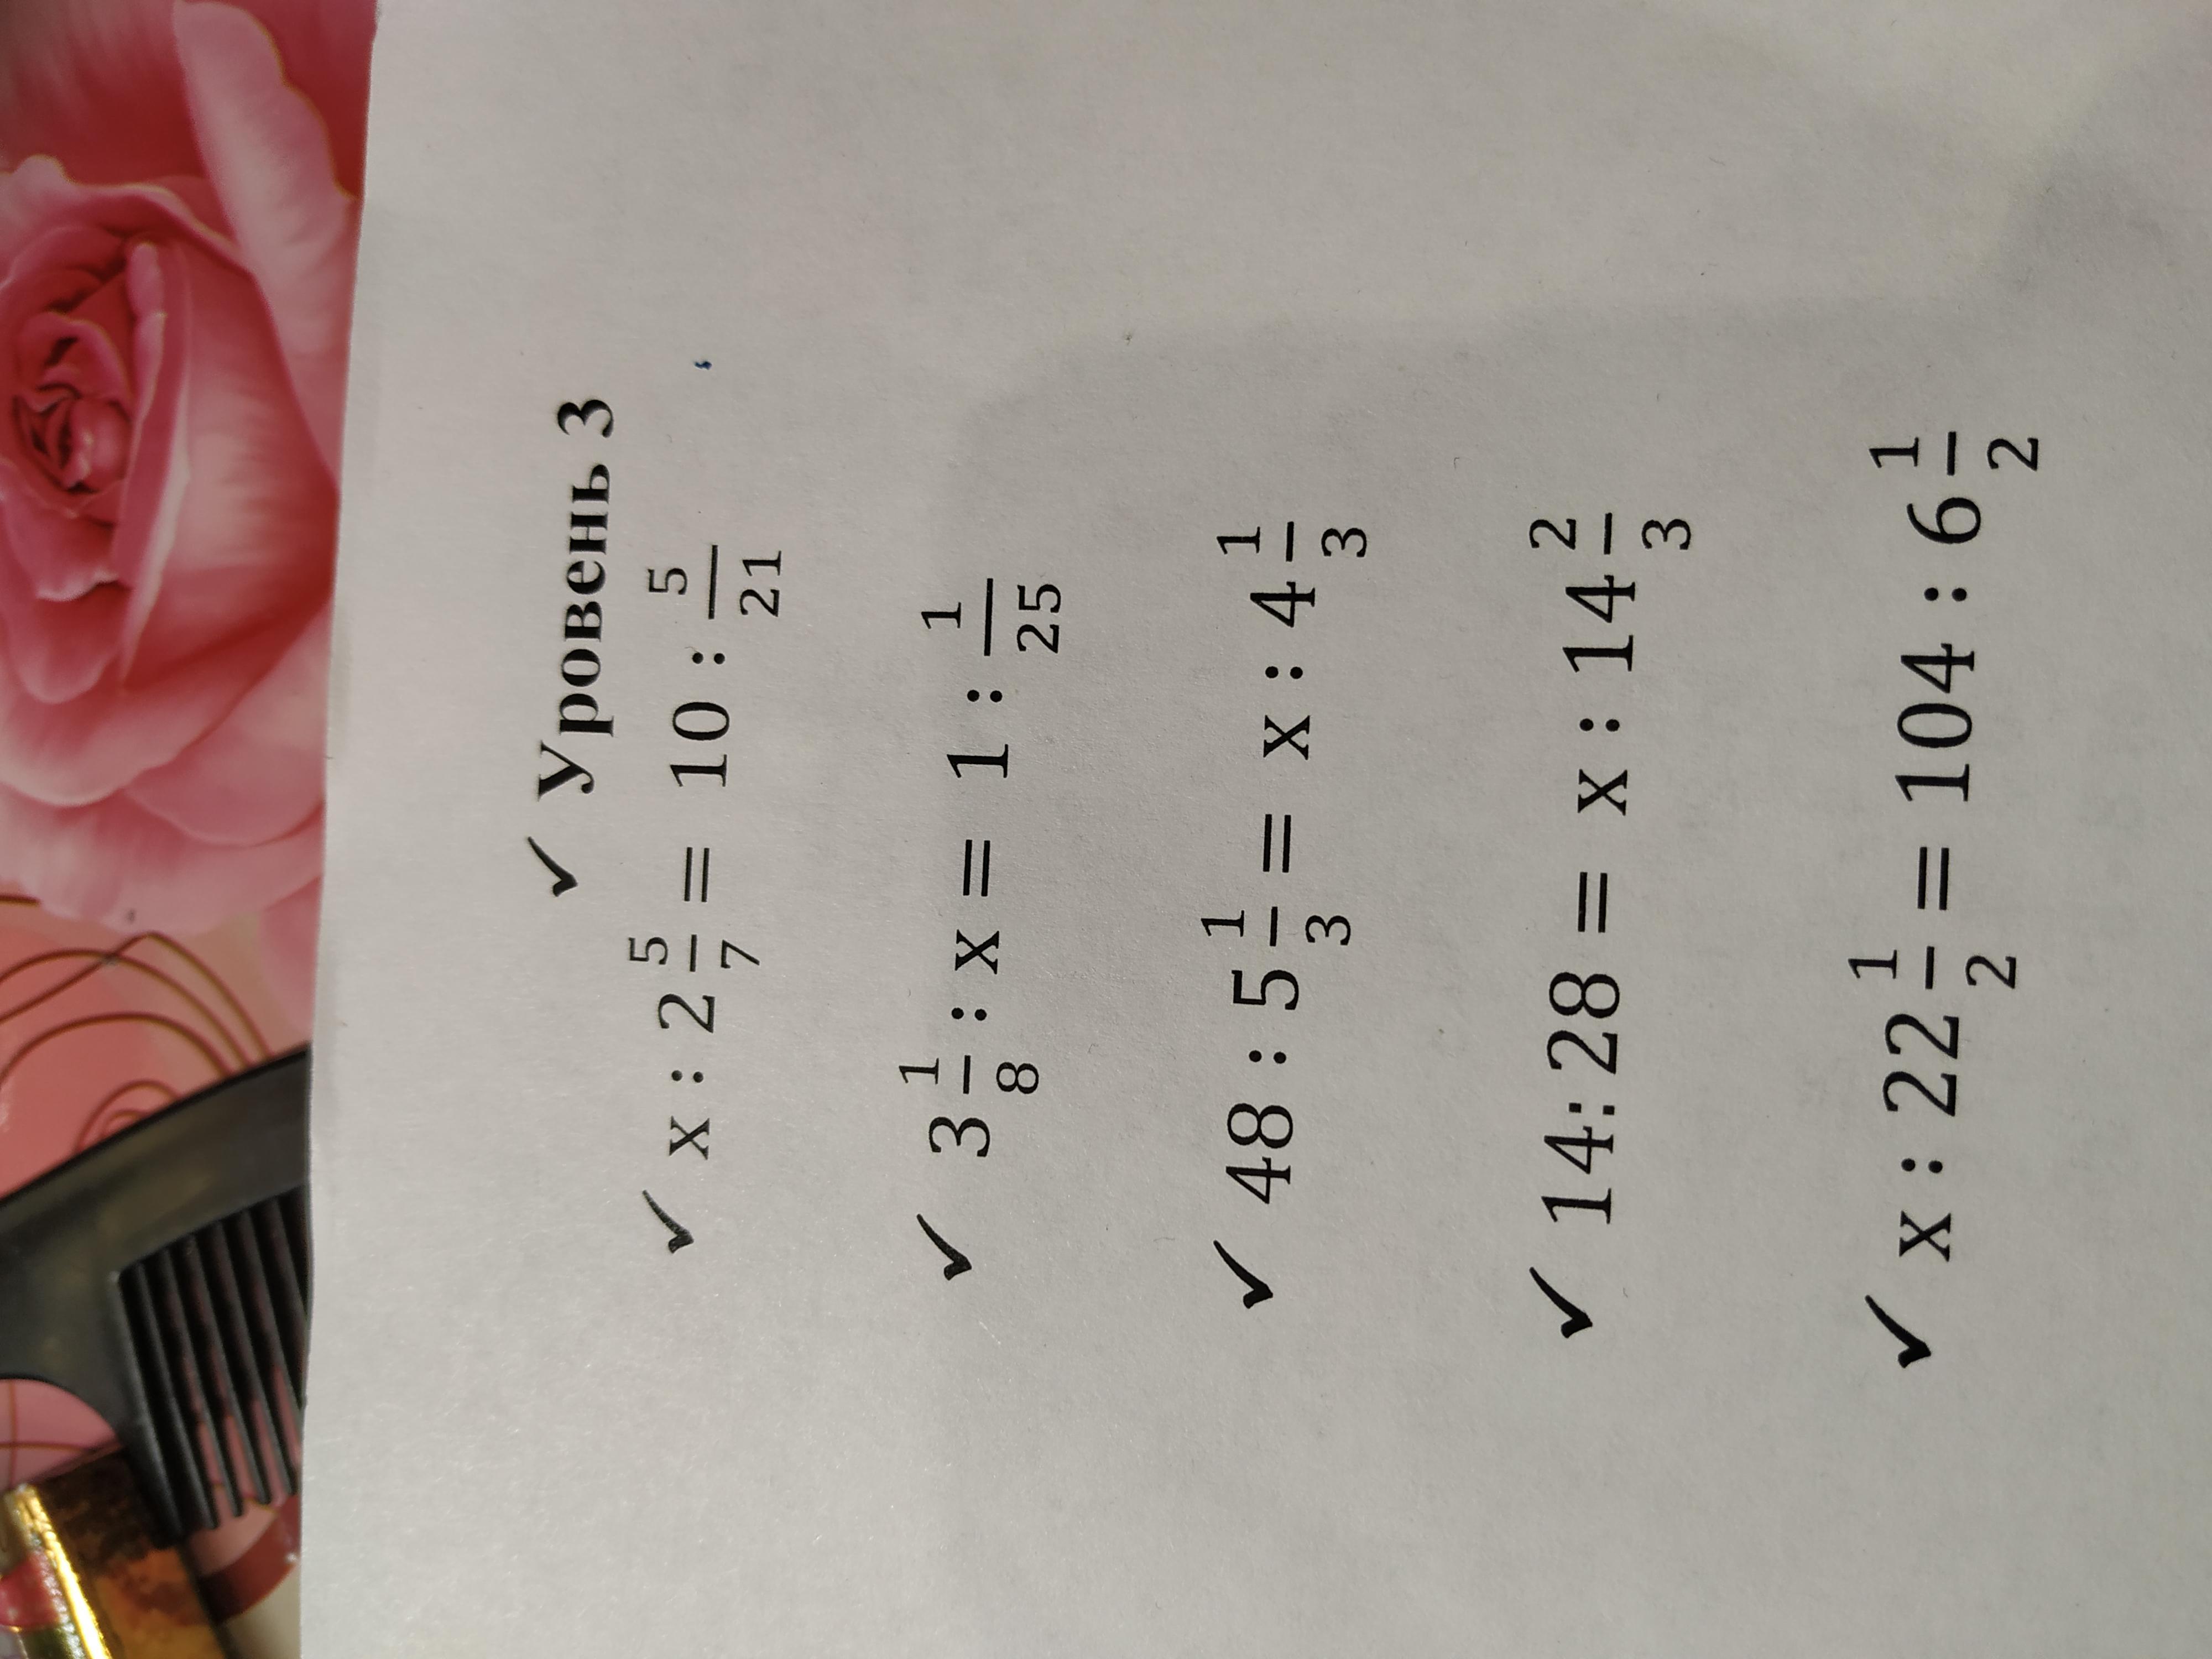 ✓ Уровень 3
✓ x : 2 5/7 = 10 : 5/21
✓ 3 1/8 : x = 1 : 1/25
✓ 48 : 5 1/3 = x : 4 1/3
✓ 14: 28 = x : 14 2/3
✓ x : 22 1/2 = 104 : 6 1/2